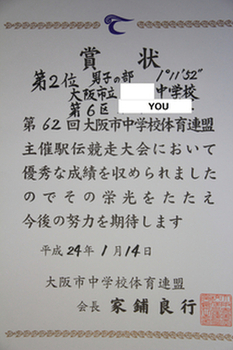 賞状
第2位 男子の部 1°11'52"
大阪市立 中学校
第6区 YOU
第62回大阪市中学校体育連盟
主催駅伝競走大会において
優秀な成績を収められました
のでその栄光をたたえ
今後の努力を期待します
平成24年1月14日
大阪市中学校体育連盟
会長 家鋪良行